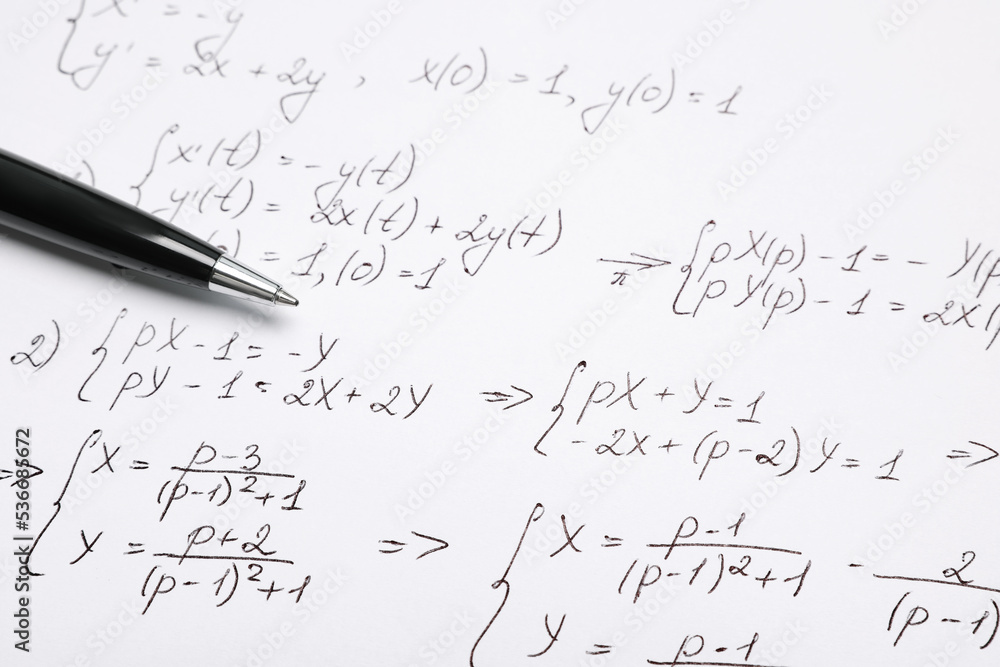 x' = -y
y' = 2x + 2y , x(0) = 1, y(0) = 1
x'(t) = -y(t)
y'(t) = 2x(t) + 2y(t)
= 1, (0) = 1
π
pX(p) - 1 = - Y(p
pY(p) - 1 = 2X(p
2) pX - 1 = -Y
pY - 1 = 2X + 2Y
=> pX + Y = 1
-2X + (p-2) Y = 1 =>
=> X = p-3 / (p-1)²+1
Y = p+2 / (p-1)²+1
=> X = p-1 / (p-1)²+1 - 2 / (p-1)
Y = p-1
Adobe Stock | 536685672